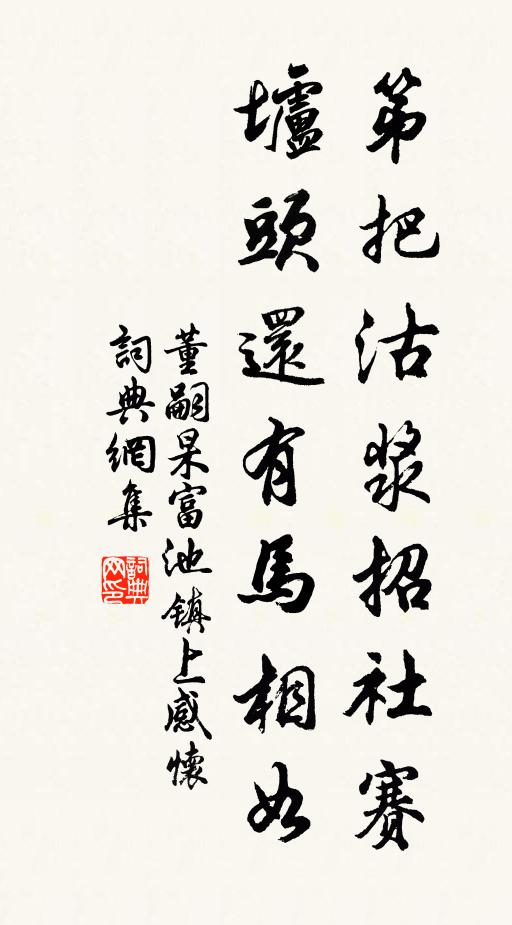 第把沽漿招社賽
壚頭還有馬相如
董嗣杲富池鎮上感懷
詞典網集
詞典网印